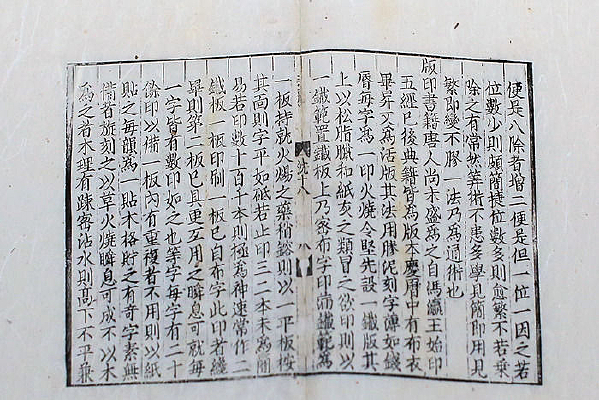 便是八除者增二便是但一位一因之若
位數少則頗簡捷位數多則愈繁不若乘
除之有常然筭術不患多學見簡即用見
繁即變不膠一法乃為通術也
版印書籍唐人尚未盛為之自馮瀛王始印
五經已後典籍皆為版本慶曆中有布衣
畢昇又為活版其法用膠泥刻字薄如錢
脣每字為一印火燒令堅先設一鐵版其
上以松脂臘和紙灰之類冒之欲印則以
一鐵範置鐵板上乃密布字印滿鐵範為
一板持就火煬之藥稍鎔則以一平板按
其面則字平如砥若止印三二本未為簡
易若印數十百千本則極為神速常作二
鐵板一板印刷一板已自布字此印者纔
畢則第二板已具更互用之瞬息可就每
一字皆有數印如之也等字每字有二十
餘印以備一板內有重複者不用則以紙
貼之每韻為一貼木格貯之有奇字素無
備者旋刻之以草火燒瞬息可成不以木
為之者木理有疎密沾水則高下不平兼